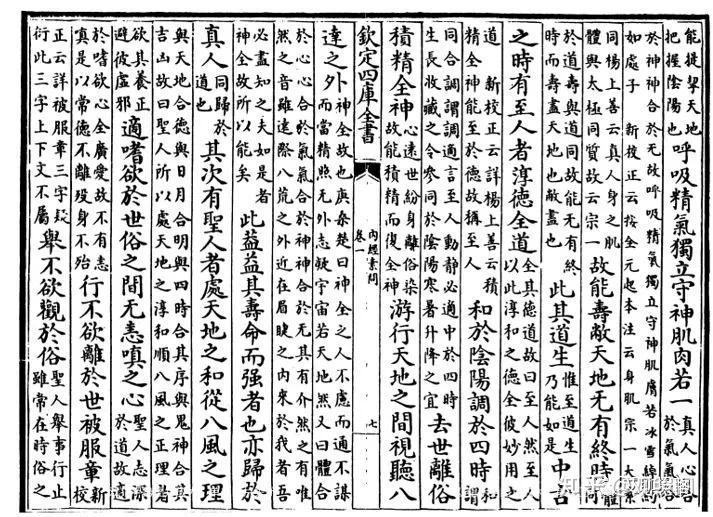 能提挈天地
把握陰陽也
呼吸精氣獨立守神肌肉若一
真人心合
於氣氣合
於神神合於无故呼吸精氣獨立守神肌膚若冰雪綽約
如處子 新校正云按全元起本注云身肌宗一太素
同楊上善云真人身之肌
體與太極同質故云宗一
故能壽敝天地无有終時
體同
於道壽與道同故能无有終
時而壽盡天地也敝盡也
此其道生
惟至道生
乃能如是
中古
之時有至人者淳德全道
全其德道故曰至人然至人
以此淳和之德全彼妙用之
道 新校正云詳楊上善云積
精全神能至於德故稱至人
和於陰陽調於四時
和謂
同合調謂調適言至人動靜必適中於四時
生長收藏之令參同於陰陽寒暑升降之宜
去世離俗
積精全神
心遠世紛身離俗染
故能積精而復全神
游行天地之間視聽八
欽定四庫全書
內經素問
卷一
七
達之外
神全故也庚桑楚曰神全之人不慮而通不謀
而當精照无外志凝宇宙若天地然又曰體合
於心心合於氣氣合於神神合於无其有介然之有唯
然之音雖遠際八荒之外近在眉睫之内來於我者吾
必盡知之夫如是者
神全故所以能矣
此蓋益其壽命而强者也亦歸於
真人
同歸於
道也
其次有聖人者處天地之和從八風之理
與天地合德與日月合明與四時合其序與鬼神合其
吉凶故曰聖人所以處天地之淳和順八風之正理者
欲其養正
避彼虛邪
適嗜欲於世俗之間无恚嗔之心
聖人志深
於道故適
於嗜欲心全廣愛故不有恚
嗔是以常德不離殁身不殆
行不欲離於世被服章
新
校
正云詳被服章三字疑
衍此三字上下文不屬
舉不欲觀於俗
聖人舉事行止
雖常在時俗之
知乎